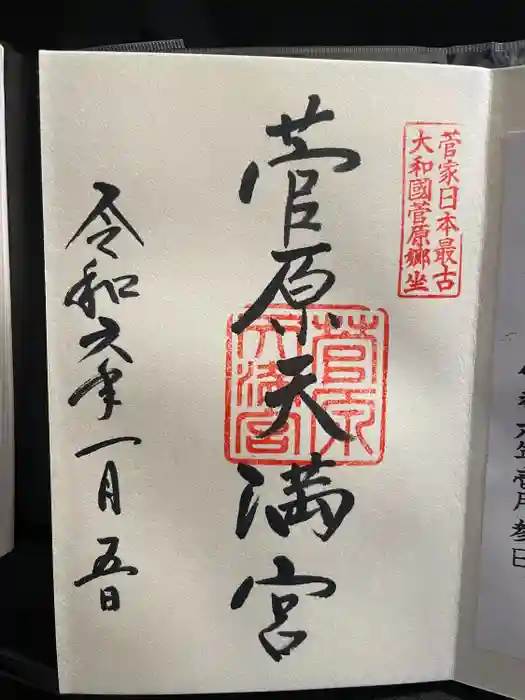 菅家日本最古
大和國菅原郷坐
菅原天満宮
菅原
天満宮
令和六年一月五日